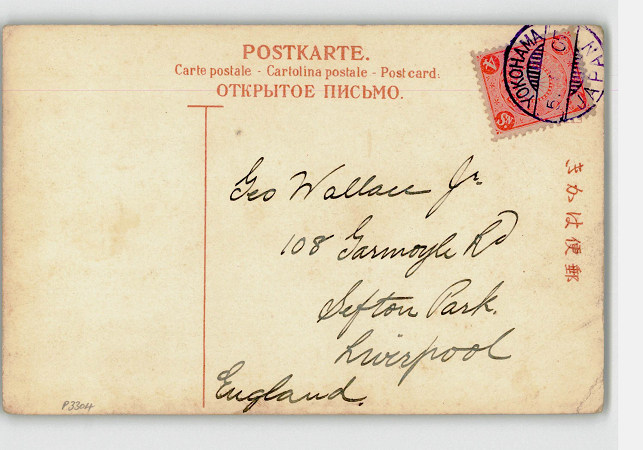 POSTKARTE.
Carte postale - Cartolina postale - Postcard.
ОТКРЫТОЕ ПИСЬМО.
YOKOHAMA
JAPAN
きかは便郵
Geo Wallace Jr.
108 Garmoyle Rd
Sefton Park.
Liverpool
England.
P3304